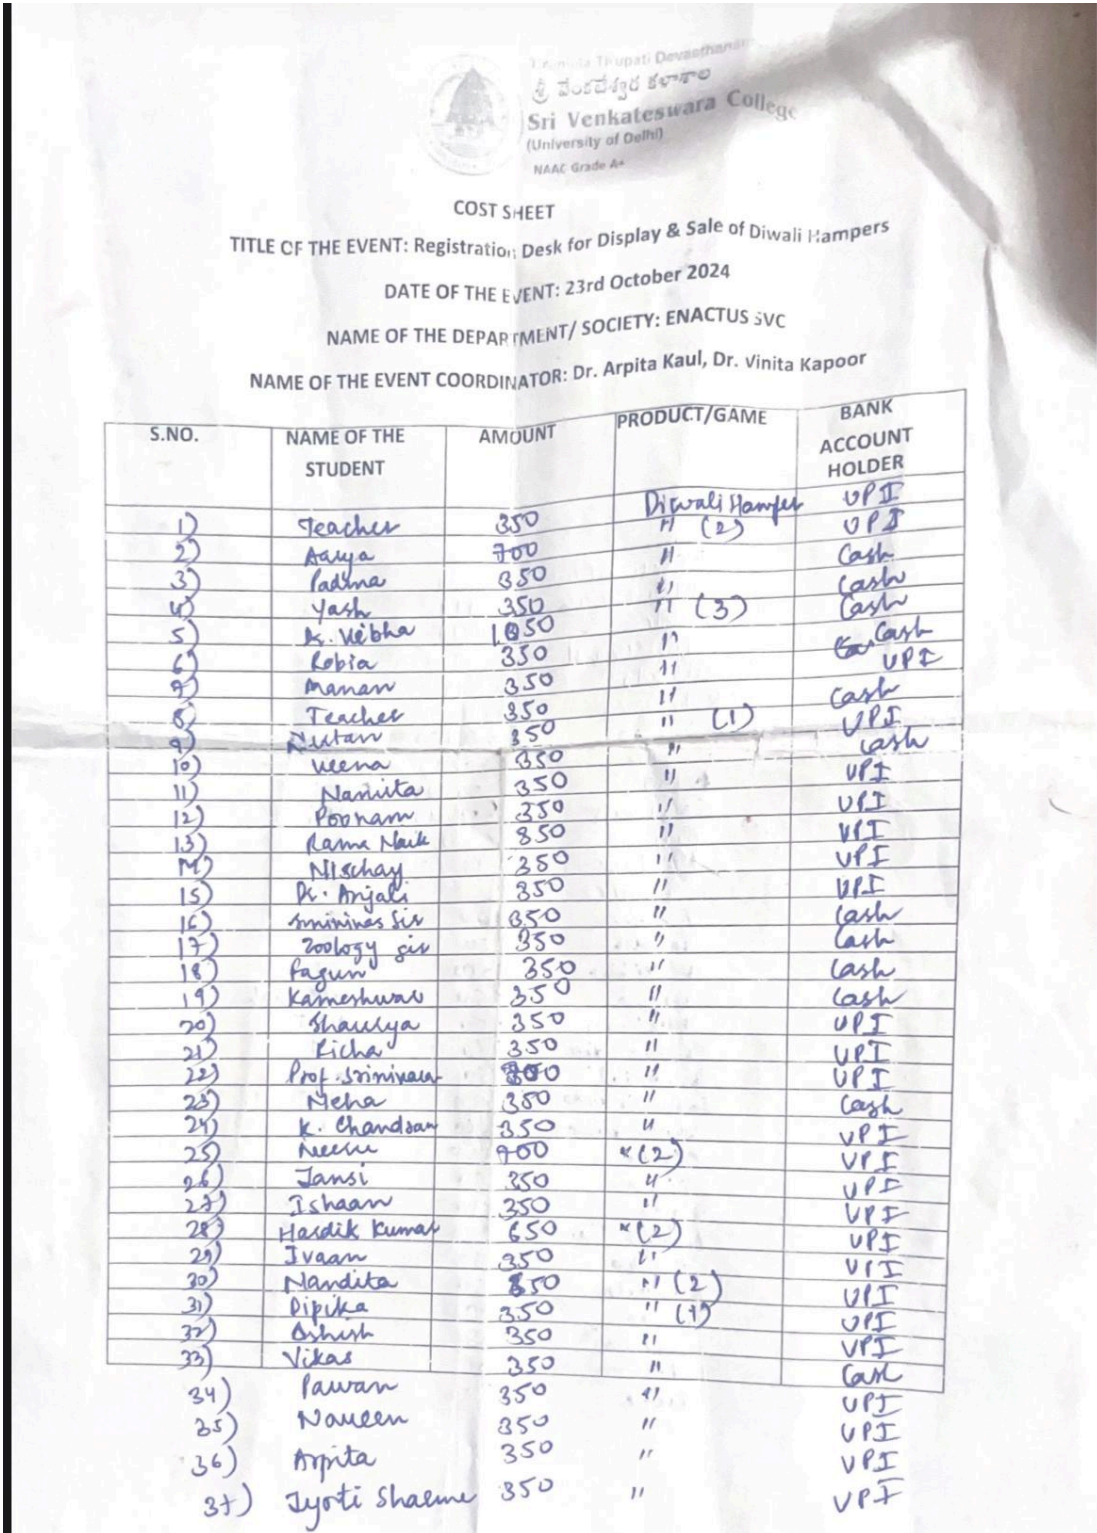 Tirupati Devasthanams
శ్రీ వేంకటేశ్వర కళాశాల
Sri Venkateswara College
(University of Delhi)
NAAC Grade A+
COST SHEET
TITLE OF THE EVENT: Registration Desk for Display & Sale of Diwali Hampers
DATE OF THE EVENT: 23rd October 2024
NAME OF THE DEPARTMENT/ SOCIETY: ENACTUS SVC
NAME OF THE EVENT COORDINATOR: Dr. Arpita Kaul, Dr. Vinita Kapoor
S.NO. NAME OF THE STUDENT AMOUNT PRODUCT/GAME BANK ACCOUNT HOLDER
1) Teacher 350 Diwali Hamper UPI
2) Aarya 700 " (2) UPI
3) Padma 350 " Cash
4) Yash 350 " Cash
5) Dr. Vibha 1050 " (3) Cash
6) Robia 350 " Cash
7) Manan 350 " UPI
8) Teacher 350 " Cash
9) Nutan 350 " (1) UPI
10) Veena 350 " Cash
11) Namita 350 " UPI
12) Poonam 350 " UPI
13) Rama Naik 350 " UPI
14) Nischay 350 " UPI
15) Dr. Anjali 350 " UPI
16) Sir 350 " Cash
17) Zoology sir 350 " Cash
18) Fagun 350 " Cash
19) Kameshwar 350 " Cash
20) Shaurya 350 " UPI
21) Richa 350 " UPI
22) Prof. Srinivasa " UPI
23) Neha 350 " Cash
24) K. Chandran 350 " UPI
25) Neeru 700 "(2) UPI
26) Jansi 350 " UPI
27) Ishaan 350 " UPI
28) Hardik Kumar 650 "(2) UPI
29) Ivaan 350 " UPI
30) Nandita " (2) UPI
31) Dipika 350 " (1) UPI
32) Ashish 350 " UPI
33) Vikas 350 " Cash
34) Pawan 350 " UPI
35) Naveen 350 " UPI
36) Arpita 350 " UPI
37) Jyoti Sharma 350 " UPI